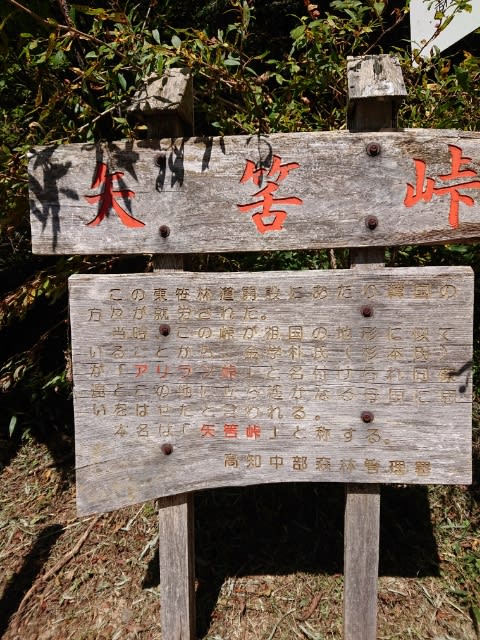 矢筈峠
この東笹林道開設にあたり韓国の
方々が就労された。
当時、この峠が祖国の地形に似て
いることから、金学 氏(杉本氏)
が「アリラン峠」と名付けられ
とこの地に立ち遥かなる母国に思
いをはせたと言われる。
本名は「矢筈峠」と称する。
高知中部森林管理署